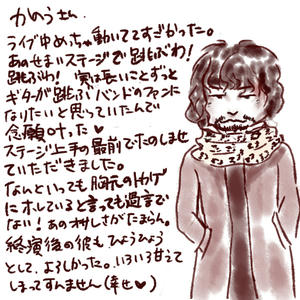 かのうさん.
ライブゆめちゃ動いててすごかった。
あのせまいステージで跳ぶわ!
跳ぶわ! 実は長いことずっと
ギターが跳ぶバンドのファンに
なりたいと思っていたんで
念願叶った♥
ステージ上手の最前でたのしませ
ていただきました。
なんといっても胸元の
にホレていると言っても過言で
ない! あの オしさがたまらん。
終演後の彼もひょうひょう
として、よろしかった。いろいろ甘えて
しまってすんません(幸せ♥)